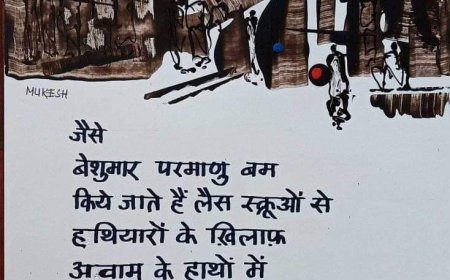 MUKESH
जैसे
बेशुमार परमाणु बम
किये जाते हैं लैस स्क्रूओं से
हथियारों के ख़िलाफ़
अवाम के हाथों में